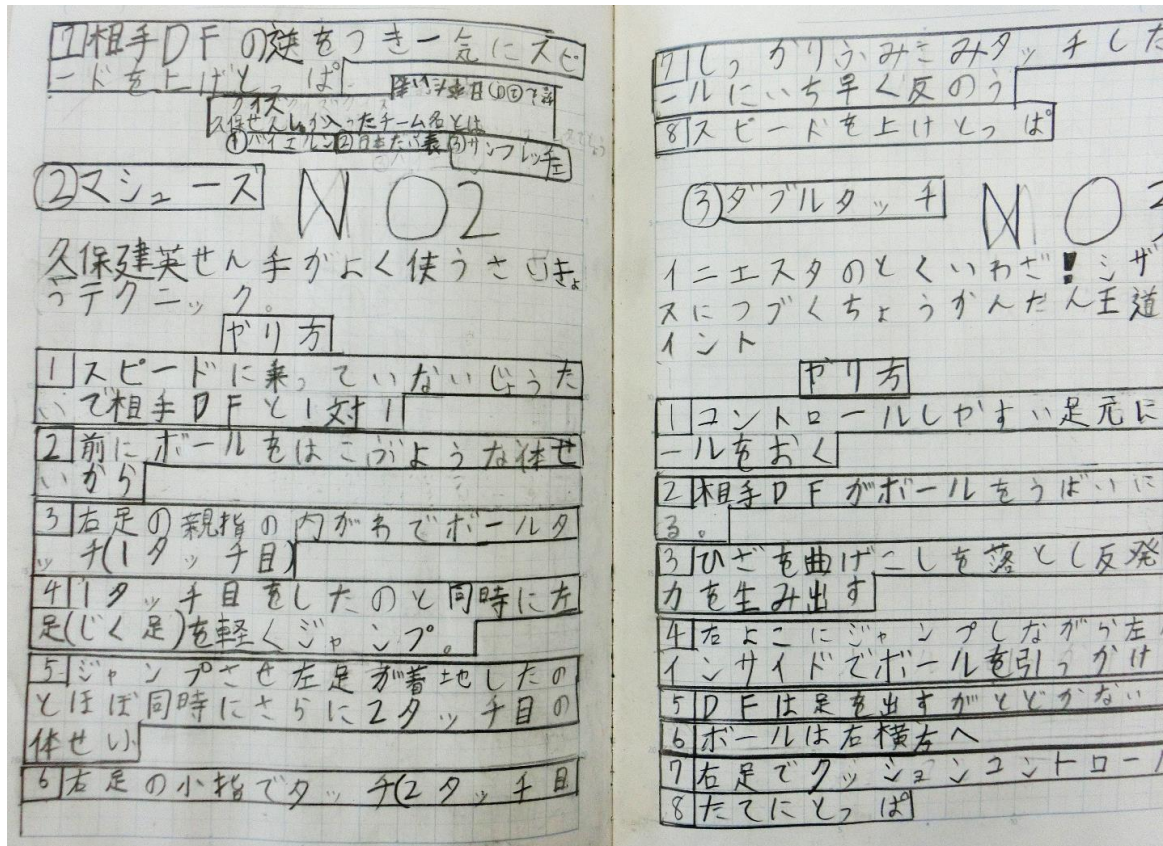 7相手DFの逆をつき一気にスピ
ードを上げとっぱ
クイズ
久保せん手が入ったチーム名とは
①バイエルン②日本代表③サンフレッチェ
②マシューズ NO2
久保建英せん手がよく使うさいきょ
うテクニック。
やり方
1スピードに乗っていないじょうた
いで相手DFと1対1
2前にボールをはこぶような体せ
いから
3右足の親指の内がわでボールタ
ッチ(1タッチ目)
4 1タッチ目をしたのと同時に左
足(じく足)を軽くジャンプ。
5ジャンプさせ左足が着地したの
とほぼ同時にさらに2タッチ目の
体せい
6右足の小指でタッチ(2タッチ目
7しっかりふみこみタッチした
ールにいち早く反のう
8スピードを上げとっぱ
③ダブルタッチ NO3
イニエスタのとくいわざ!シザ
スにつづくちょうかんたん王道
イント
やり方
1コントロールしやすい足元に
ールをおく
2相手DFがボールをうばいに
る。
3ひざを曲げこしを落とし反発
力を生み出す
4右よこにジャンプしながら左
インサイドでボールを引っかけ
5DFは足を出すがとどかない
6ボールは右横方へ
7右足でクッションコントロール
8たてにとっぱ